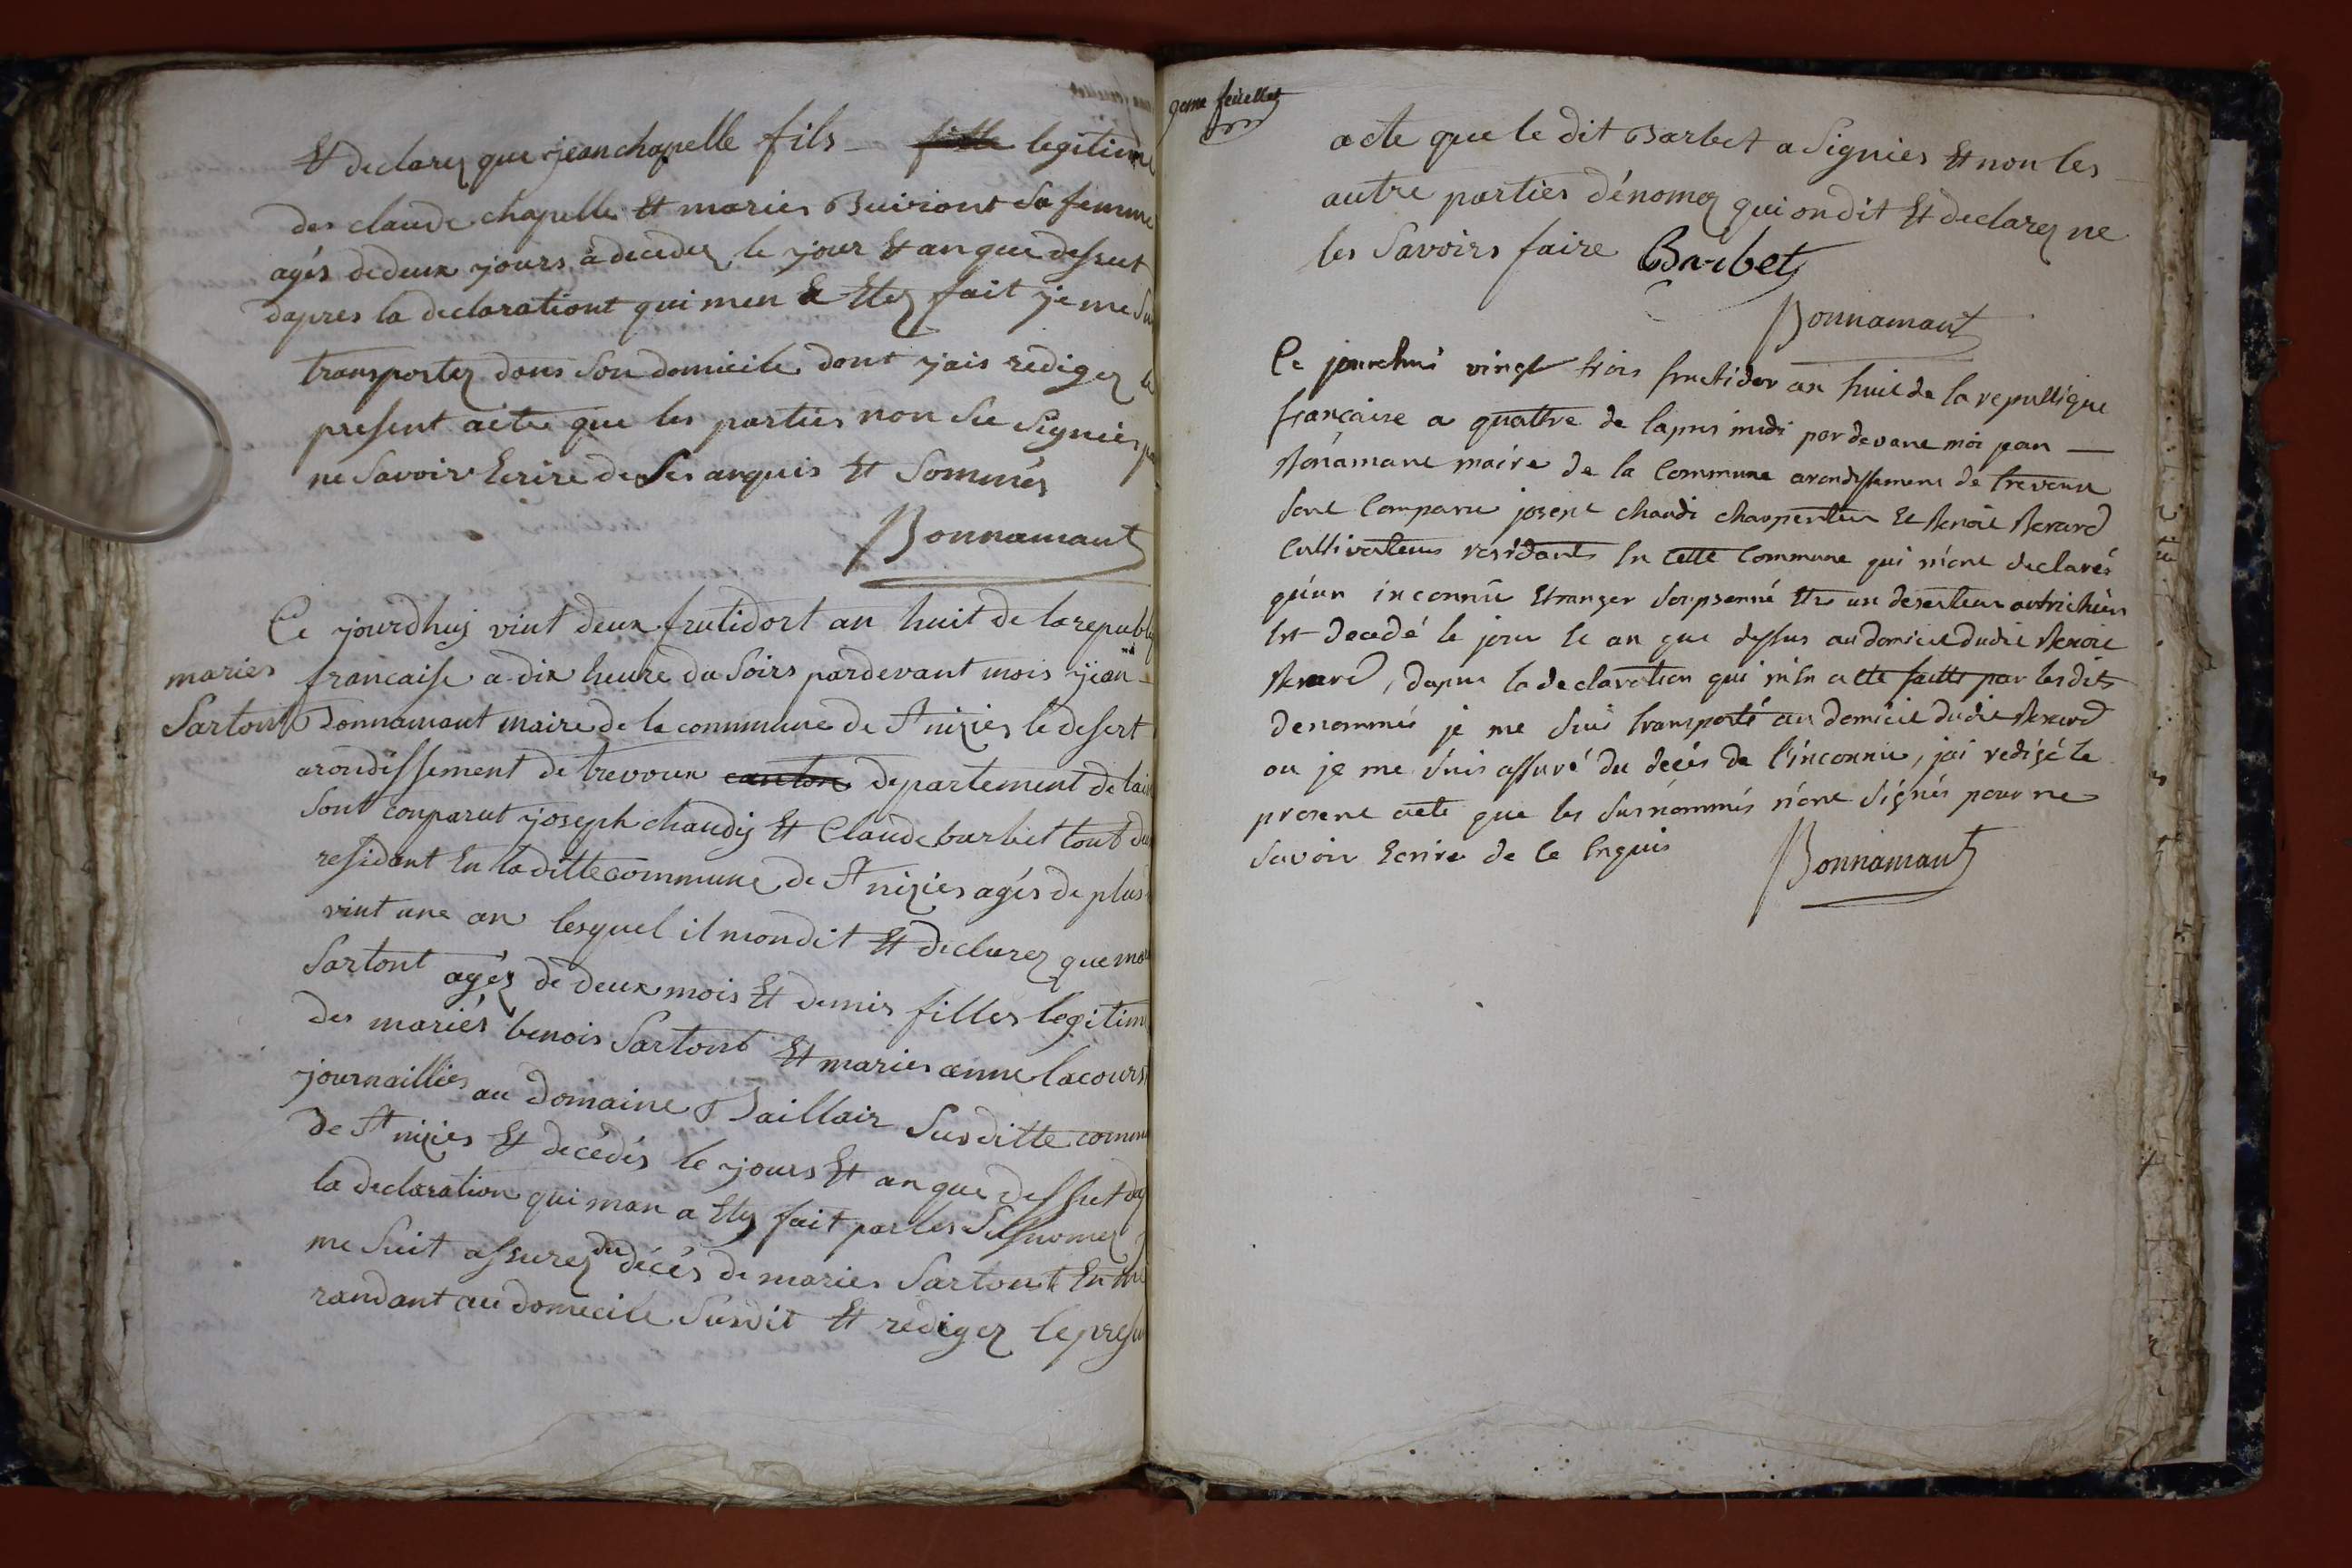 Et declarez que jean chapelle fils — fille legitime
des claude chapelle Et maries Buiriont Sa femme
agés de deux jours a deceder le jour Et an que dessut
dapres la declarationt qui men a Etez fait je me
transportez dans Son domicile dont jais rediger le
present acte que les parties non Su Signies
ne Savoir Ecrire de Ses anquis Et Sommés
Bonnamant
Ce jourdhuy vint deux frutidort an huit de la republiq
francaise a dix heure du Soirs pardevant mois jean
maries
Sartout
Bonnamant maire de la commune de St nizies le desert
arondissement de trevoux canton departement de lain
Sont conparut joseph chaudy Et Claude barbet tout
residant En la ditte commune de St nizies agés de plus
vint une an lesquel il mondit Et declarez que
Sartout agéz de deux mois Et demis filles legitim
des mariés benois Sartout Et maries anne lacours
journaillies au domaine Baillair Surditte comm
de St nizies Et decédés le jours Et an que dessut
la declaration qui man a Etez fait par les Susnomez
me Suit assurez du décés de maries Sartout En
randant au domicile Susdit Et rediger le presen
9eme feuillet
acte que le dit Barbet a Signies Et non les
autre parties dénomez qui ondit Et declarez ne
les Savoirs faire Barbet
Bonnamant
Ce jourdhui vingt trois fructidor an huit de la republique
française a quattre de lapres midi par devant moi jean —
Bonamant maire de la Commune arondissement de trevoux
Sont Comparu joseph chaudi charpentier Et Benoit Renard
Cultivateurs residants En cette Commune qui m'ont declarés
qu'un inconnu Etranger Soupsonné Etre un deserteur autrichien
Est decedé le jour Et an que dessus au domicile dudit Benoit
Renard, dapres la declaration qui m'En a Eté faitte par lesdits
denommés je me Suis transporté au domicile dudit Renard
ou je me Suis assuré du decés de l'inconnu, jai redigé le
present acte que les Susnommés n'ont Signés pour ne
Savoir Ecrire de ce Enquis
Bonnamant